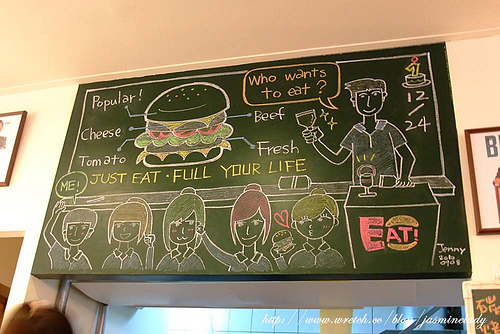 Popular!
Cheese
Tomato
Beef
Fresh
JUST EAT · FULL YOUR LIFE
Who wants
to eat?
ME!
1
12
24
EAT!
Jenny
2010
0908
B
http://www.wretch.cc/blog/jasminelady